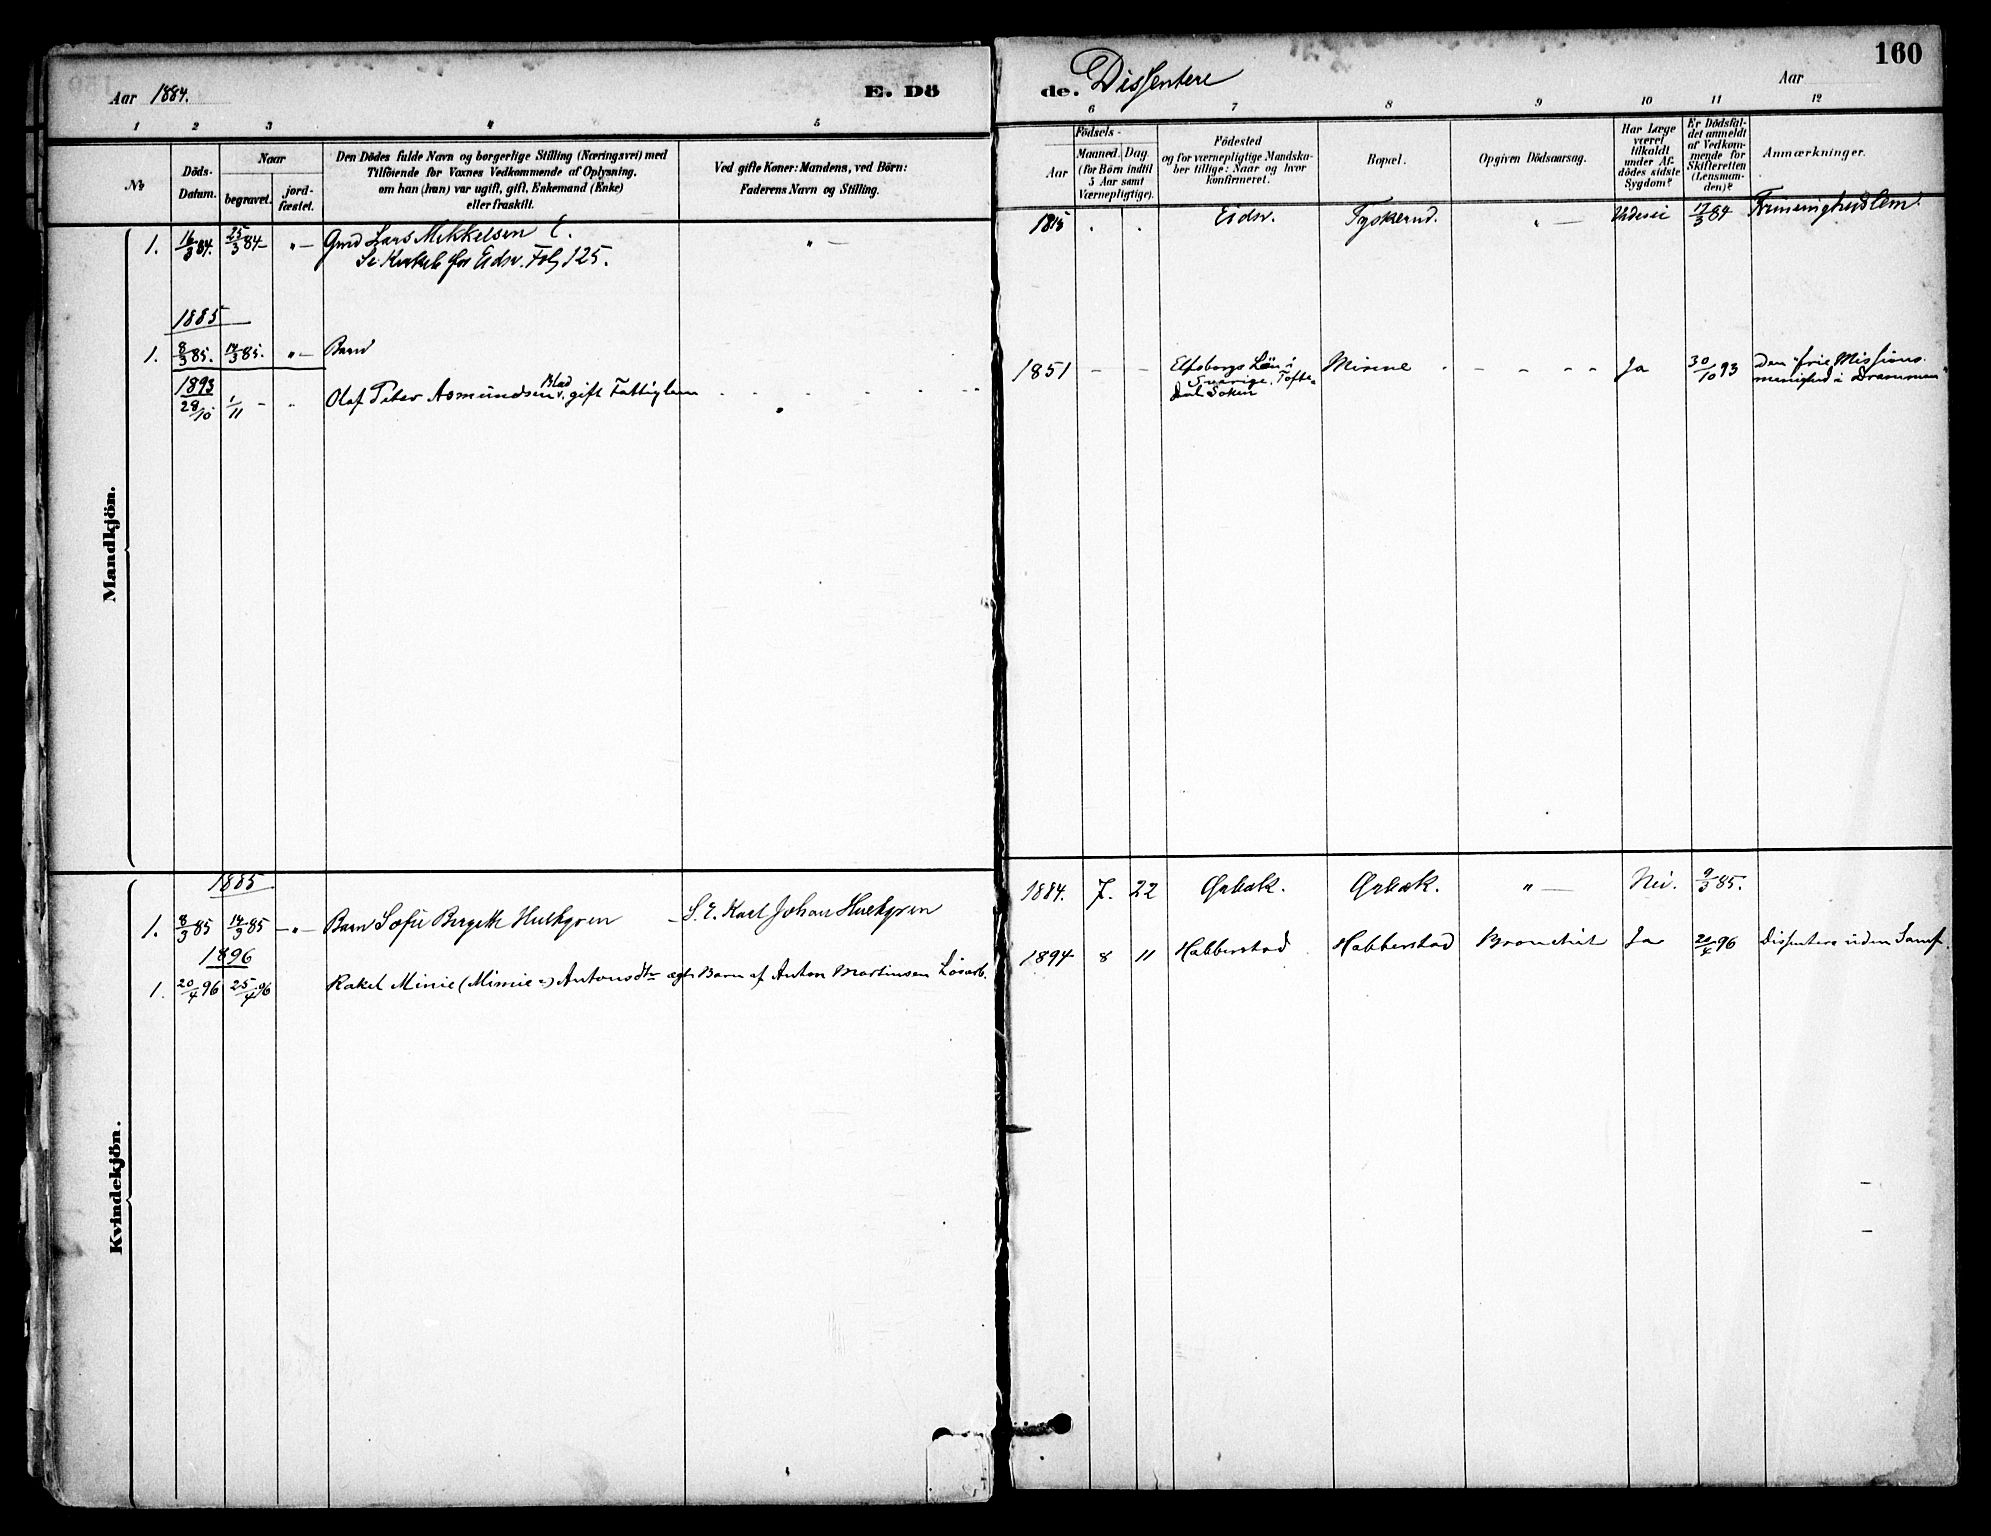 Aar 1884.
E. Dö
de. Dissentere
Aar
160
1 2 3 4 5 6 7 8 9 10 11 12
No
Döds-
Datum.
Naar
begravet.
jord-
fæstet.
Den Dödes fulde Navn og borgerlige Stilling (Næringsvei) med
Tilföiende for Voxnes Vedkommende af Oplysning.
om han (hun) var ugift, gift, Enkemand (Enke)
eller fraskilt.
Ved gifte Koner: Mandens, ved Börn:
Faderens Navn og Stilling.
Födsels-
Aar
Maaned. Dag.
(for Börn indtil
5 Aar samt
Værnepligtige).
Födested
og for værnepligtige Mandska-
ber tillige: Naar og hvor
konfirmeret.
Bopæl.
Opgiven Dödsaarsag.
Har Læge
været
tilkaldt
under Af-
dödes sidste
Sygdom?
Er Dödsfal-
det anmeldt
af Vedkom-
mende for
Skifteretten
(Lensman-
den)?
Anmærkninger.
Mandkjön.
1. 16/3 84. 25/3 84 " — Gmd Lars Mikkelsen " — 1815 . . Eidsv. Tyskerud. " — 17/3 84
Fol 125.
1885
1. 8/3 85. 14/3 85. " — Barn
1893
28/10 1/11 - - Olaf Peter Asmundsen Blad gift Fattiglem 1851 - - Elfsborgs Län i Minne - - - - Ja 30/10 93 Den "frie Missions-
Sverige, Tofte- menighed i Drammen"
dal Soken
Kvindekjön.
1885
1. 8/3 85 14/3 85 — " — Barn Sofie Bergitte — S. E. Karl Johan 1884. 7. 22 Ørbæk. Ørbæk. " — Nei. 9/3 85.
1896
1. 20/4 96 25/4 96 Rakel Minie (Mimie) Antonsdtr ægte Barn af Anton Martinsen Løsarb. 1894 8 11 Habberstad Habberstad Bronchit Ja 20/4 96 Dissentere uden Samf.